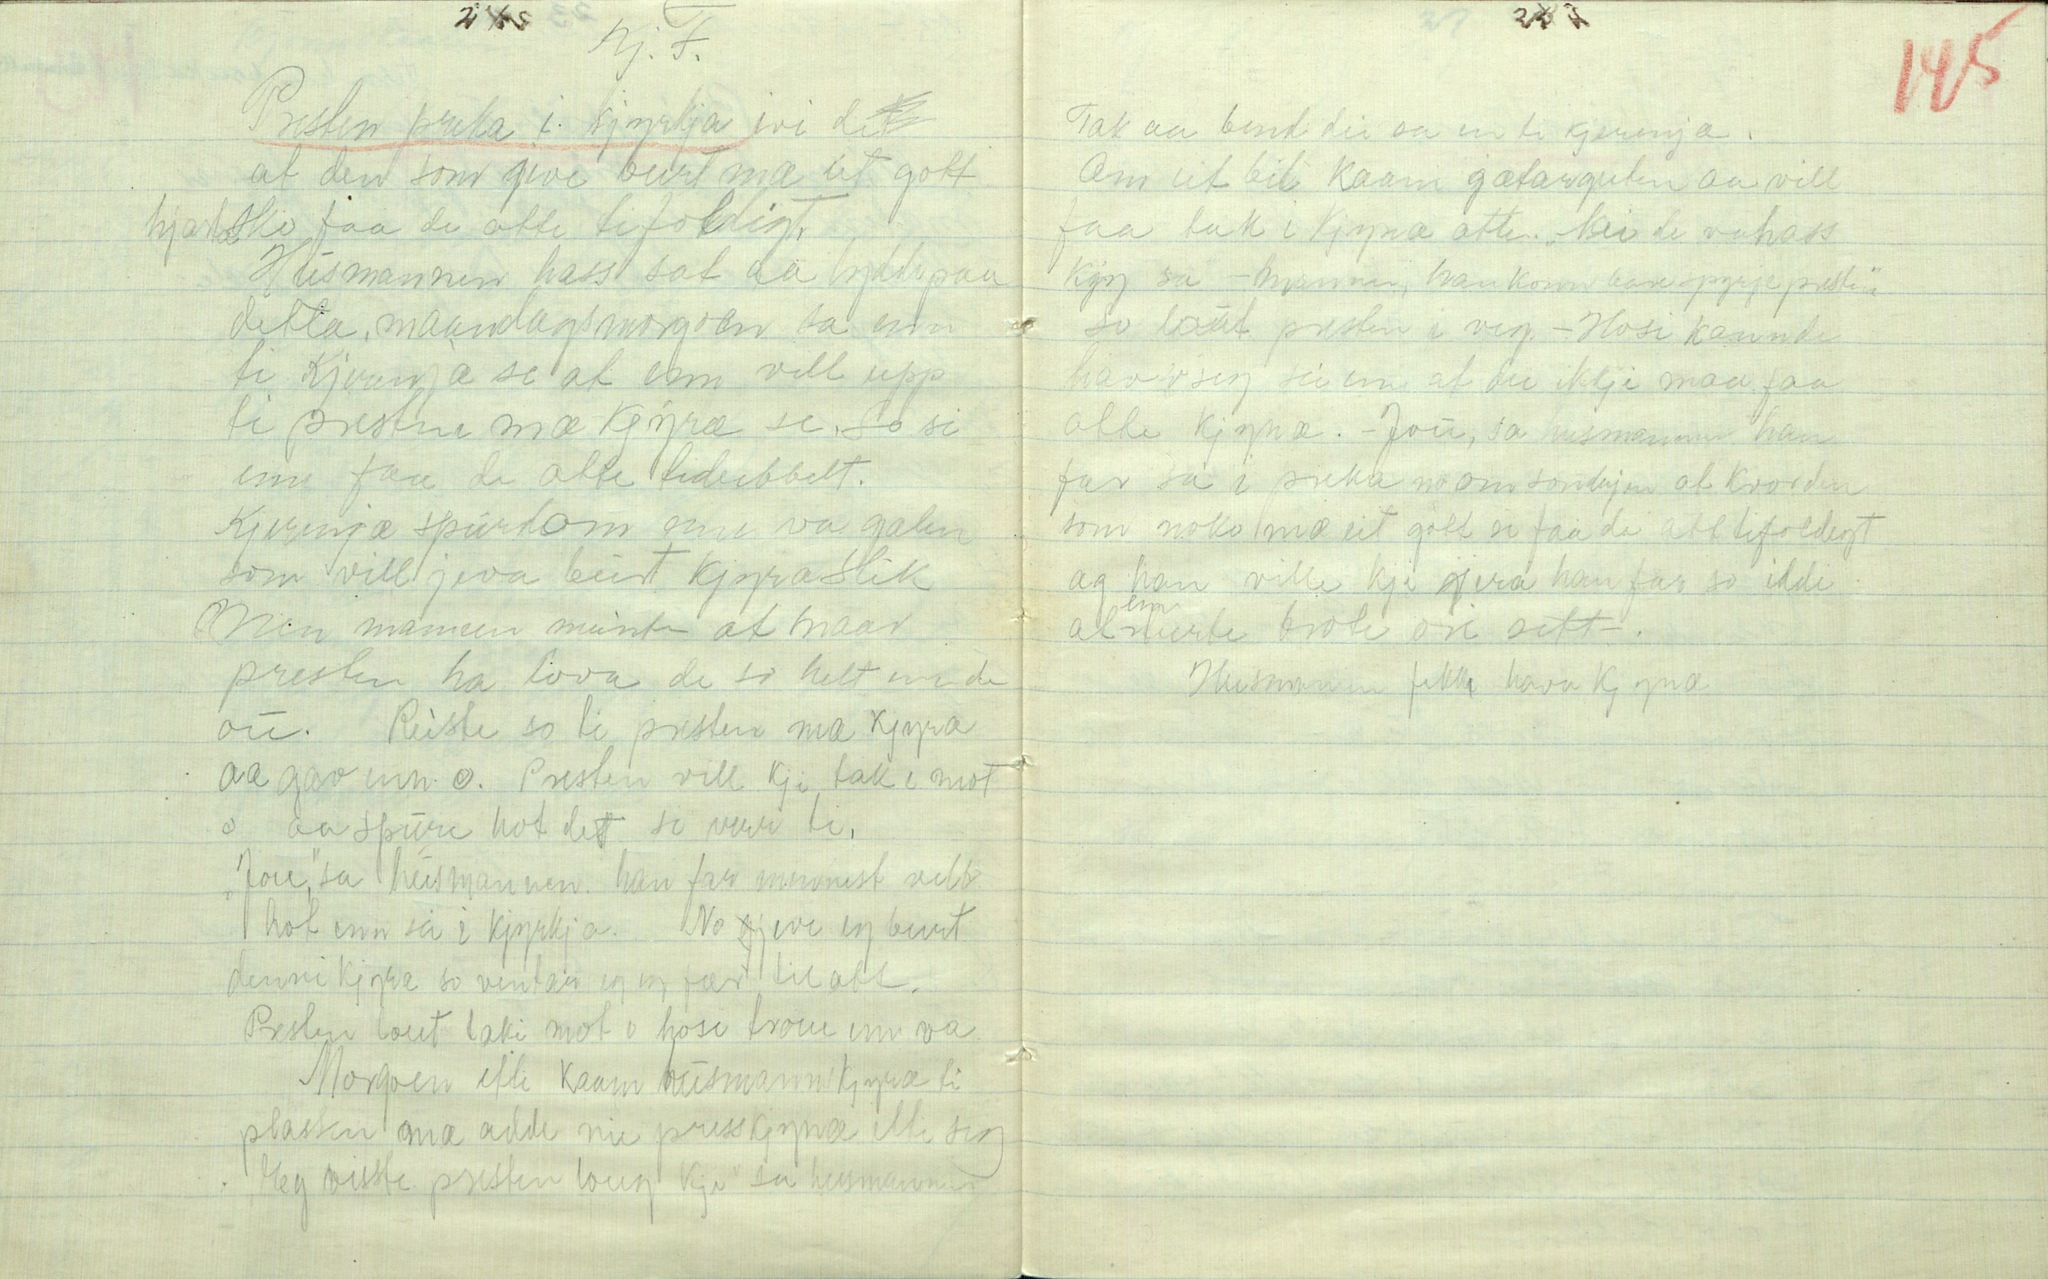 145
Nj. T.
Presten preka i kjyrkja ivi det
at den som give burt mæ eit gott
hjarta sko faa de atte tifoldigt.
Husmannen hass sat aa lydde paa
detta, maandagsmorgoen sa enn
ti kjeringæ se at enn vill upp
ti presten mæ kjyræ si, so si
enn faa de atte tedubbelt.
Kjeringæ spurd om enn va galen
som vill jeva burt kjyra slik
Men mannen meinte at naar
presten ha lova de so helt enn de
ou. Reiste so ti presten mæ kjyra
aa gav enn o. Presten vill kji tak i mot
o aa spure hot dett se var ti.
"Jou," sa husmannen. han far minnest vell
hot enn sei i kjyrkja. No gjeve eg burt
denni kjyra so ventar eg eg fær ti att.
Presten lout taki mot o hosi troue enn va
Morgoen ette kaam husmannskjyræ ti
plassen mæ adde nie presskjynæ ette seg
"Heg visste presten loug kji" sa husmannen
Tak aa bind dei sa en ti kjeringa.
Om eit bil kaam gætarguten aa vill
faa tak i kjynæ atte. "Nei de va hass
kjy sa mannen, han konn bare spyrje presten"
so lout presten i veg. – Hosi kann de
hav seg sei enn at du ikkji maa faa
atte kjynæ. – Jou, sa husmannen han
far sa i preka no om sondagen at kvor den
som noko mæ eit gott si faa de att tifoldigt
ag han ville kji gjera han far so iddi
at enn lærte brote ori sett –.
Husmannen fekk hava kjynæ